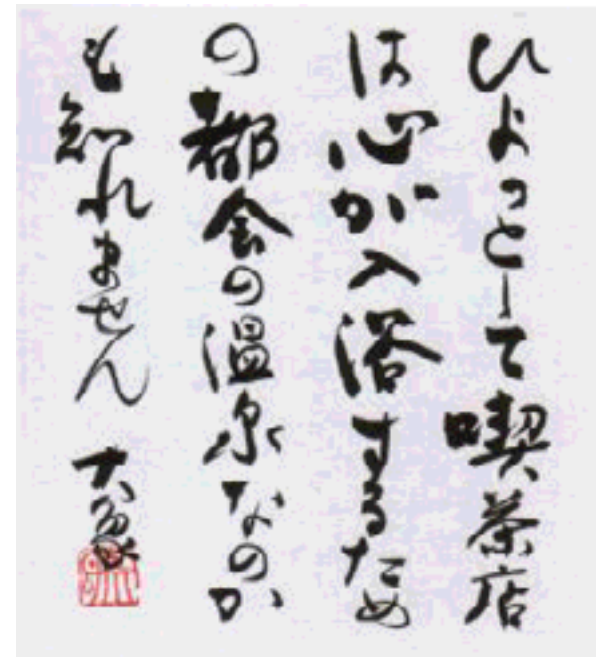 ひょっとして喫茶店
は心が入浴するため
の都会の温泉なのか
も知れません